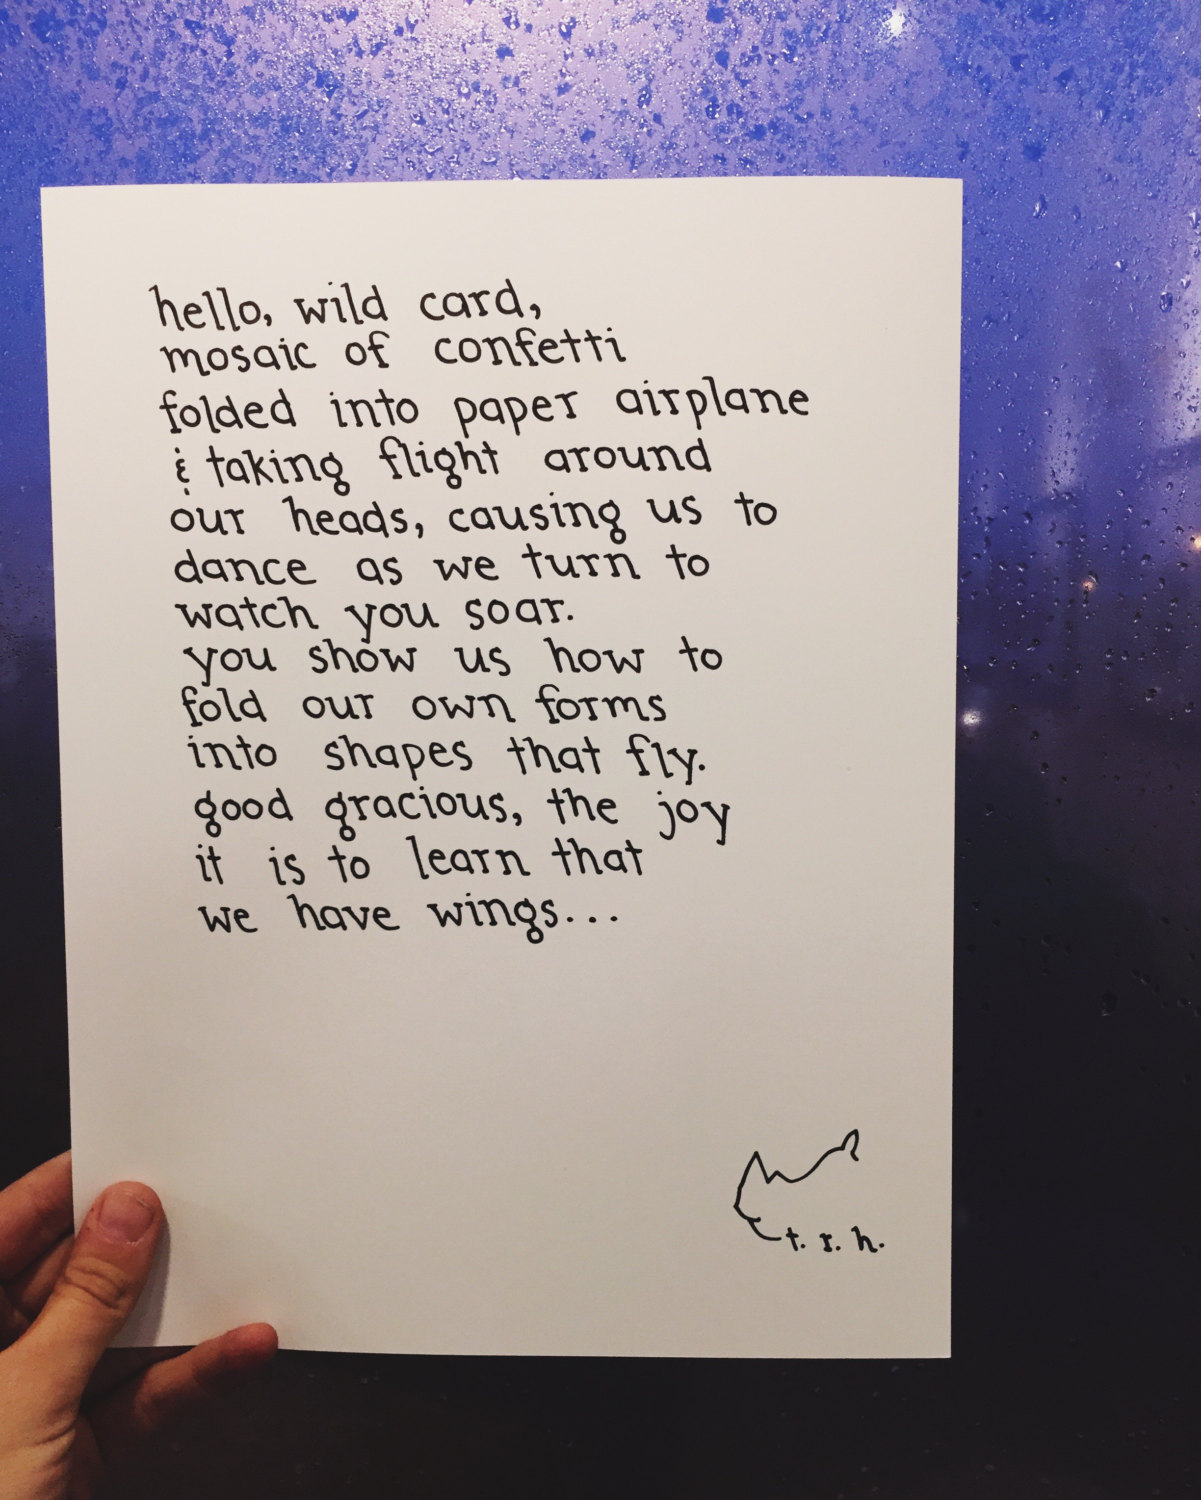 hello, wild card,
mosaic of confetti
folded into paper airplane
& taking flight around
our heads, causing us to
dance as we turn to
watch you soar.
you show us how to
fold our own forms
into shapes that fly.
good gracious, the joy
it is to learn that
we have wings...
t. r. h.